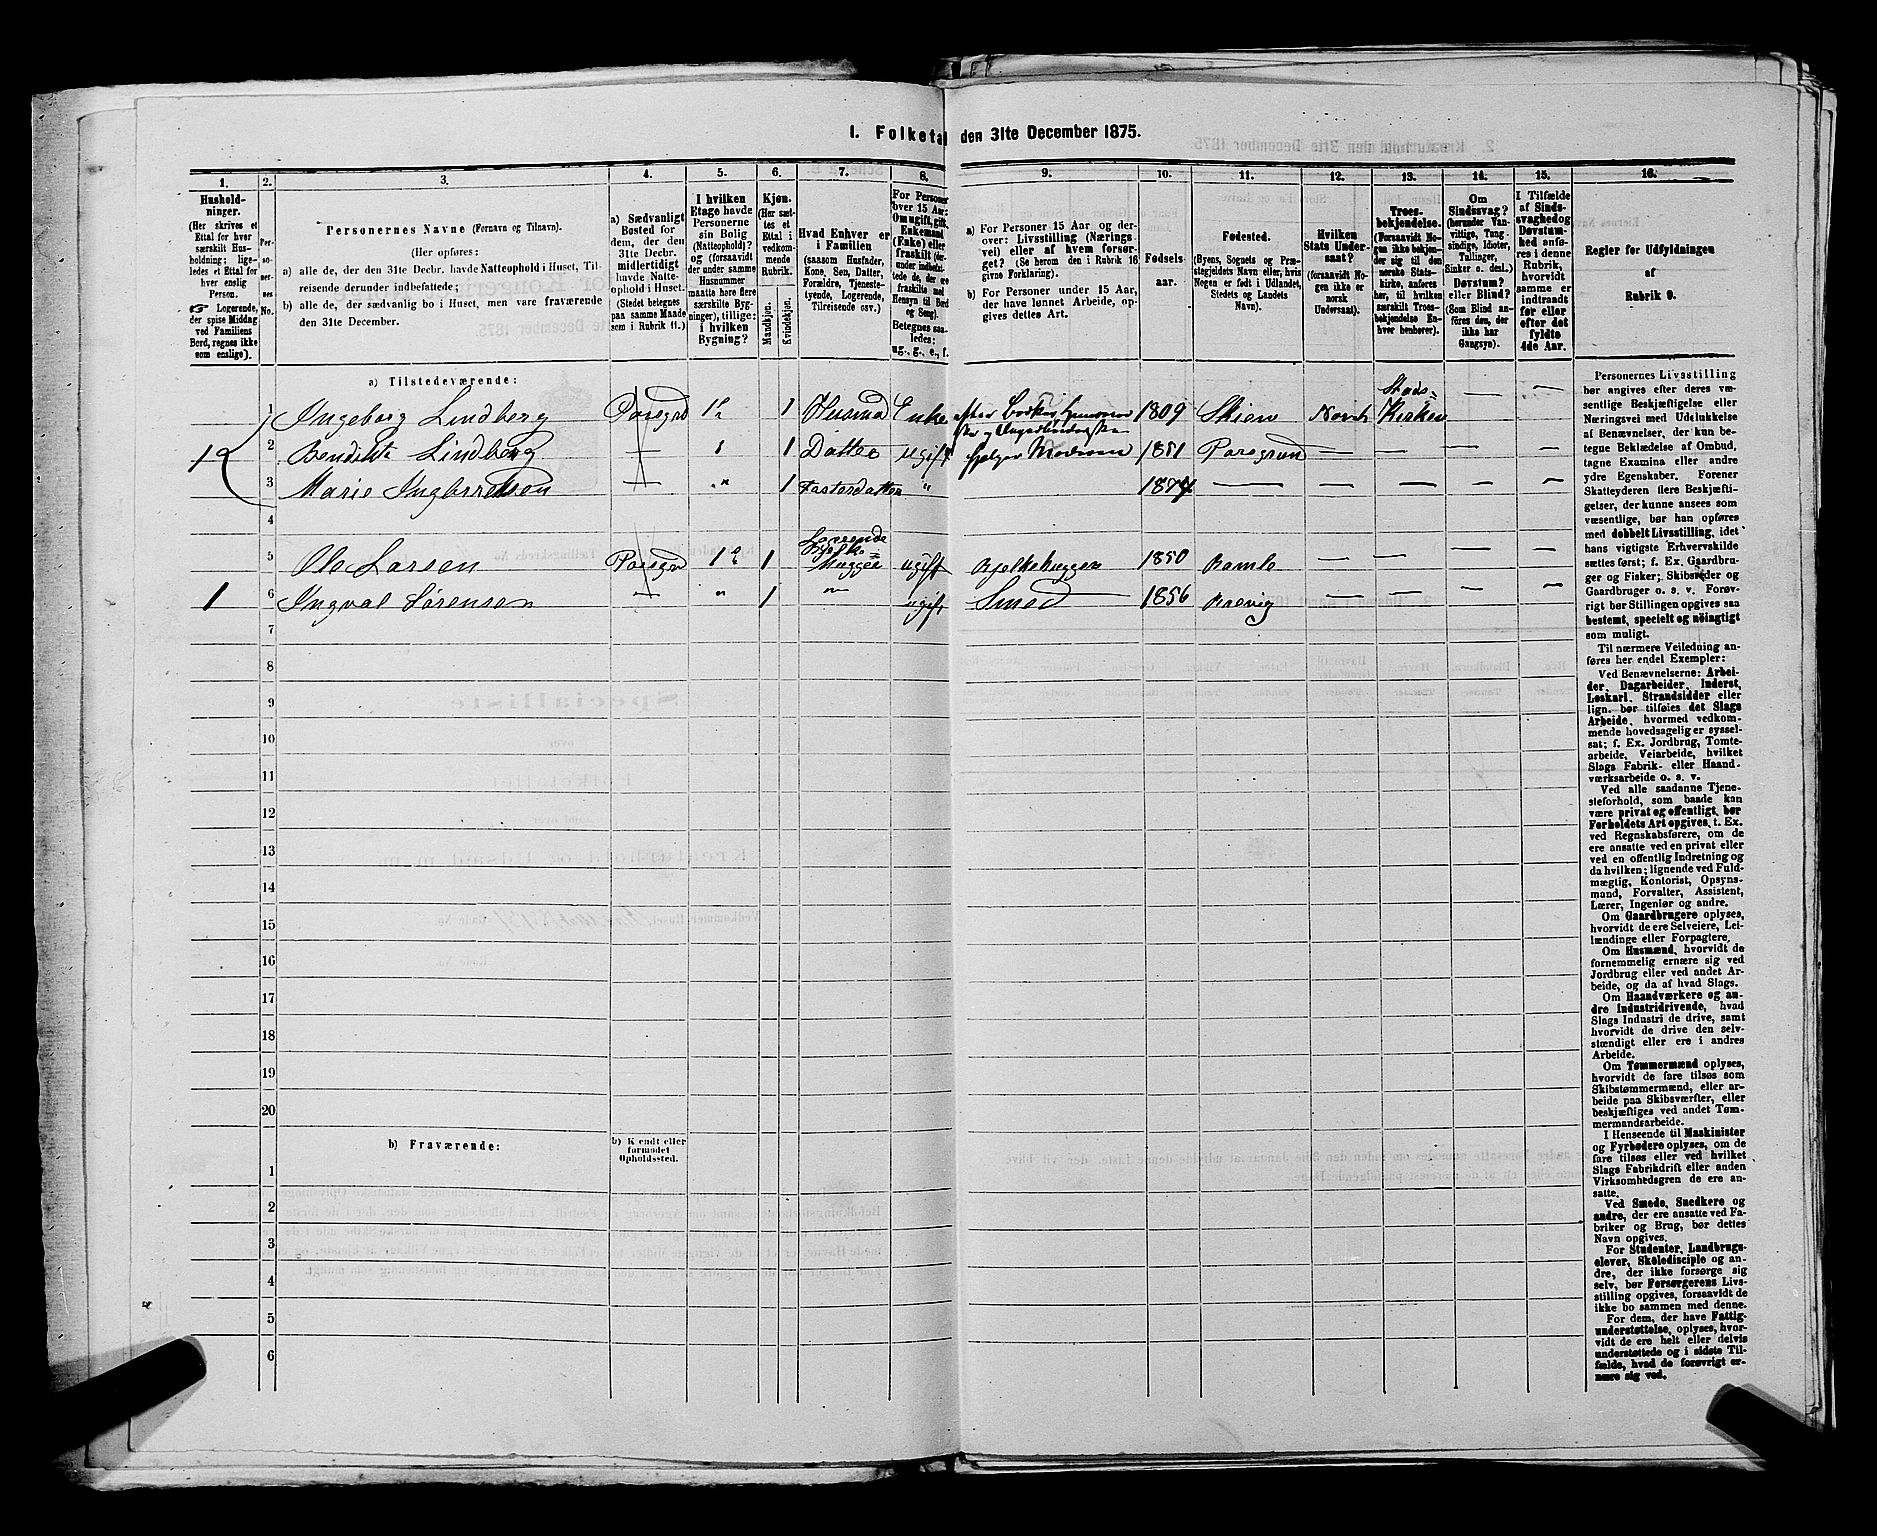 I. Folketal den 31te December 1875.
1. 2. 3. 4. 5. 6. 7. 8. 9. 10. 11. 12. 13. 14. 15. 16.
Hushold-
ninger.
(Her skrives et
Ettal for hver
særskilt Hus-
holdning; lige-
ledes et Ettal for
hver enslig
Person.
Logerende,
der spise Middag
ved Familiens
Bord, regnes ikke
som enslige).
Per-
so-
ner-
nes
No.
Personernes Navne (Fornavn og Tilnavn).
(Her opføres:
a) alle de, der den 31te Decbr. havde Natteophold i Huset, Til-
reisende derunder indbefattede;
b) alle de, der sædvanlig bo i Huset, men vare fraværende
den 31te December.
a) Sædvanligt
Bosted for
dem, der den
31te Decbr.
midlertidigt
havde Natte-
ophold i Huset.
(Stedet betegnes
paa samme Maade
som i Rubrik 11.)
I hvilken
Etage havde
Personerne
sin Bolig
(Natteophold)?
og (forsaavidt
der under samme
Husnummer
maatte høre flere
særskilte Byg-
ninger), tillige:
i hvilken
Bygning?
Kjøn.
(Her sæt-
tes et
Ettal i
vedkom-
mende
Rubrik.
Mandkjøn.
Kvindekjøn.
Hvad Enhver er
i Familien
(saasom Husfader,
Kone, Søn, Datter,
Forældre, Tjeneste-
tyende, Logerende,
Tilreisende osv.)
For Personer
over 15 Aar:
Om ugift, gift,
Enkemand
(Enke) eller
fraskilt (der-
under indbefat-
tede de, der ere
fraskilte med
Hensyn til Bord
og Seng).
Betegnes saa-
ledes:
ug., g., e., f.
a) For Personer 15 Aar og der-
over: Livsstilling (Nærings-
vei) eller af hvem forsør-
get? (Se herom den i Rubrik 16
givne Forklaring).
b) For Personer under 15 Aar,
der have lønnet Arbeide, op-
gives dettes Art.
Fødsels-
aar.
Fødested.
(Byens, Sognets og Præ-
stegjeldets Navn eller, hvis
Nogen er født i Udlandet,
Stedets og Landets
Navn).
Hvilken
Stats Under-
saat?
(forsaavidt No-
gen ikke er
norsk
Undersaat).
Troes-
bekjendelse.
(Forsaavidt No-
gen ikke bekjen-
der sig til den
norske Stats-
kirke, anføres
her, til hvilken
særskilt Troes-
bekjendelse En-
hver henhører).
Om
Sindssvag?
(herunder Van-
vittige, Tung-
sindige, Idioter,
Tullinger,
Sinker o. desl.)
Døvstum?
eller Blind?
(Som Blind an-
føres den, der
ikke har
Gangsyn).
I Tilfælde
af Sinds-
svaghed og
Døvstum-
hed anfø-
res i denne
Rubrik,
hvorvidt
samme er
indtraadt
før eller
efter det
fyldte
4de Aar.
Regler for Udfyldningen
af
Rubrik 9.
a) Tilstedeværende:
1 Ingeborg Lindberg Porsgrd 1 1 Husmod Enke 1809 Skien Norsk Stads-Kirken —
1 2 Bendikte Lindberg — 1 Datter ugift hjelper Moderen 1851 Porsgrund — — — —
3 Marie Ingbretsen — " 1 Fosterdatter " 1874 — — — — —
4
5 Ole Larsen Porsgrd 1 1 ugift Bjelkehugger 1850 Bamle — — — —
1 6 Ingval Sørensen — " 1 " ugift Smed 1856 Brevig — — — —
7
8
9
10
11
12
13
14
15
16
17
18
19
20
b) Fraværende:
b) Kjendt eller
formodet
Opholdssted.
1
2
3
4
5
6
Personernes Livsstilling
bør angives efter deres væ-
sentlige Beskjæftigelse eller
Næringsvei med Udelukkelse
af Benævnelser, der kun be-
tegne Beklædelse af Ombud,
tagne Examina eller andre
ydre Egenskaber. Forener
Skatteyderen flere Beskjæfti-
gelser, der kunne ansees som
væsentlige, bør han opføres
med dobbelt Livsstilling, idet
hans vigtigste Erhvervskilde
sættes først; f. Ex. Gaardbru-
ger og Fisker; Skibsreder og
Gaardbruger o. s. v. Forøv-
rigt bør Stillingen opgives saa
bestemt, specielt og nøiagtigt
som muligt.
Til nærmere Veiledning an-
føres her endel Exempler:
Ved Benævnelserne: Arbei-
der, Dagarbeider, Inderst,
Løskarl, Strandsidder eller
lign. bør tilføies det Slags
Arbeide, hvormed vedkom-
mende hovedsagelig er syssel-
sat; f. Ex. Jordbrug, Tomte-
arbeide, Veiarbeide, hvilket
Slags Fabrik- eller Haand-
værksarbeide o. s. v.
Ved alle saadanne Tjene-
steforhold, som baade kan
være privat og offentligt, bør
Forholdets Art opgives, t. Ex.
ved Regnskabsførere, om de
ere ansatte ved en privat eller
ved en offentlig Indretning og
da hvilken; lignende ved Fuld-
mægtig, Kontorist, Opsyns-
mand, Forvalter, Assistent,
Lærer, Ingeniør og andre.
Om Gaardbrugere oplyses,
hvorvidt de ere Selveiere, Lei-
lændinge eller Forpagtere.
Om Husmænd, hvorvidt de
fornemmelig ernære sig ved
Jordbrug eller ved andet Ar-
beide, og da af hvad Slags.
Om Haandværkere og an-
dre Industridrivende, hvad
Slags Industri de drive, samt
hvorvidt de drive den selv-
stændigt eller ere i andres
Arbeide.
Om Tømmermænd oplyses,
hvorvidt de fare tilsøs som
Skibstømmermænd, eller ar-
beide paa Skibsværfter, eller
beskjæftiges ved andet Tøm-
mermandsarbeide.
I Henseende til Maskinister
og Fyrbødere oplyses, om de
fare tilsøs eller ved hvilket
Slags Fabrikdrift eller anden
Virksomhedsgren de ere an-
satte.
Ved Smede, Snedkere og
andre, der ere ansatte ved Fa-
briker og Brug, bør dettes
Navn opgives.
For Studenter, Landbrugs-
elever, Skoledisciple og an-
dre, der ikke forsørge sig
selv, bør Forsørgerens Livs-
stilling opgives, forsaavidt de
ikke bo sammen med denne.
For dem, der have Fattig-
understøttelse, oplyses, hvor-
vidt de ere helt eller delvis
understøttede og i sidste Til-
fælde, hvad de forøvrigt er-
nære sig ved.